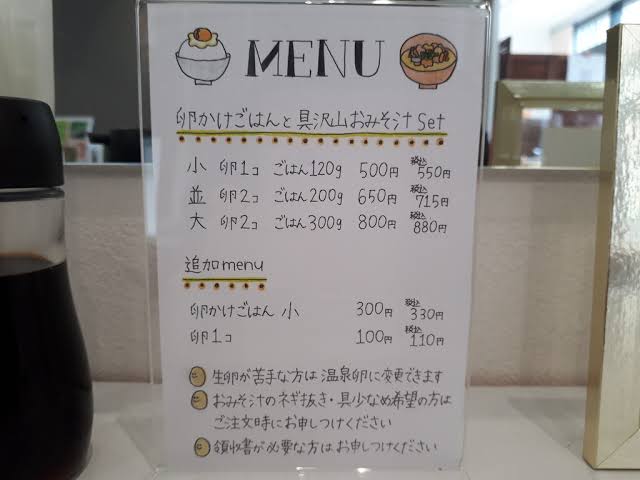 MENU
卵かけごはんと具沢山おみそ汁 Set
小 卵1コ ごはん120g 500円 税込550円
並 卵2コ ごはん200g 650円 税込715円
大 卵2コ ごはん300g 800円 税込880円
追加menu
卵かけごはん 小 300円 税込330円
卵1コ 100円 税込110円
生卵が苦手な方は温泉卵に変更できます
おみそ汁のネギ抜き・具少なめ希望の方は
ご注文時にお申しつけください
領収書が必要な方はお申しつけください